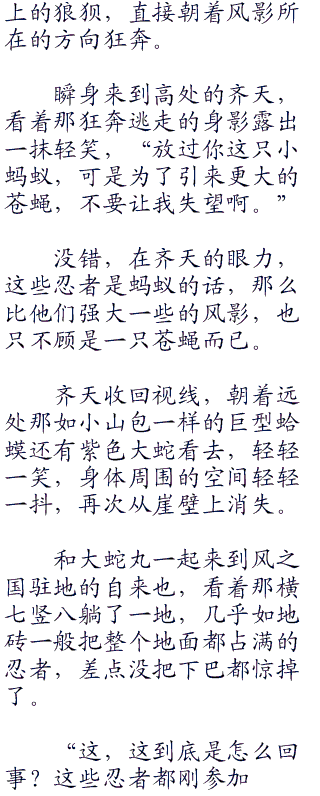 上的狼狈，直接朝着风影所
在的方向狂奔。
瞬身来到高处的齐天，
看着那狂奔逃走的身影露出
一抹轻笑，“放过你这只小
蚂蚁，可是为了引来更大的
苍蝇，不要让我失望啊。”
没错，在齐天的眼力，
这些忍者是蚂蚁的话，那么
比他们强大一些的风影，也
只不顾是一只苍蝇而已。
齐天收回视线，朝着远
处那如小山包一样的巨型蛤
蟆还有紫色大蛇看去，轻轻
一笑，身体周围的空间轻轻
一抖，再次从崖壁上消失。
和大蛇丸一起来到风之
国驻地的自来也，看着那横
七竖八躺了一地，几乎如地
砖一般把整个地面都占满的
忍者，差点没把下巴都惊掉
了。
“这，这到底是怎么回
事？这些忍者都刚参加